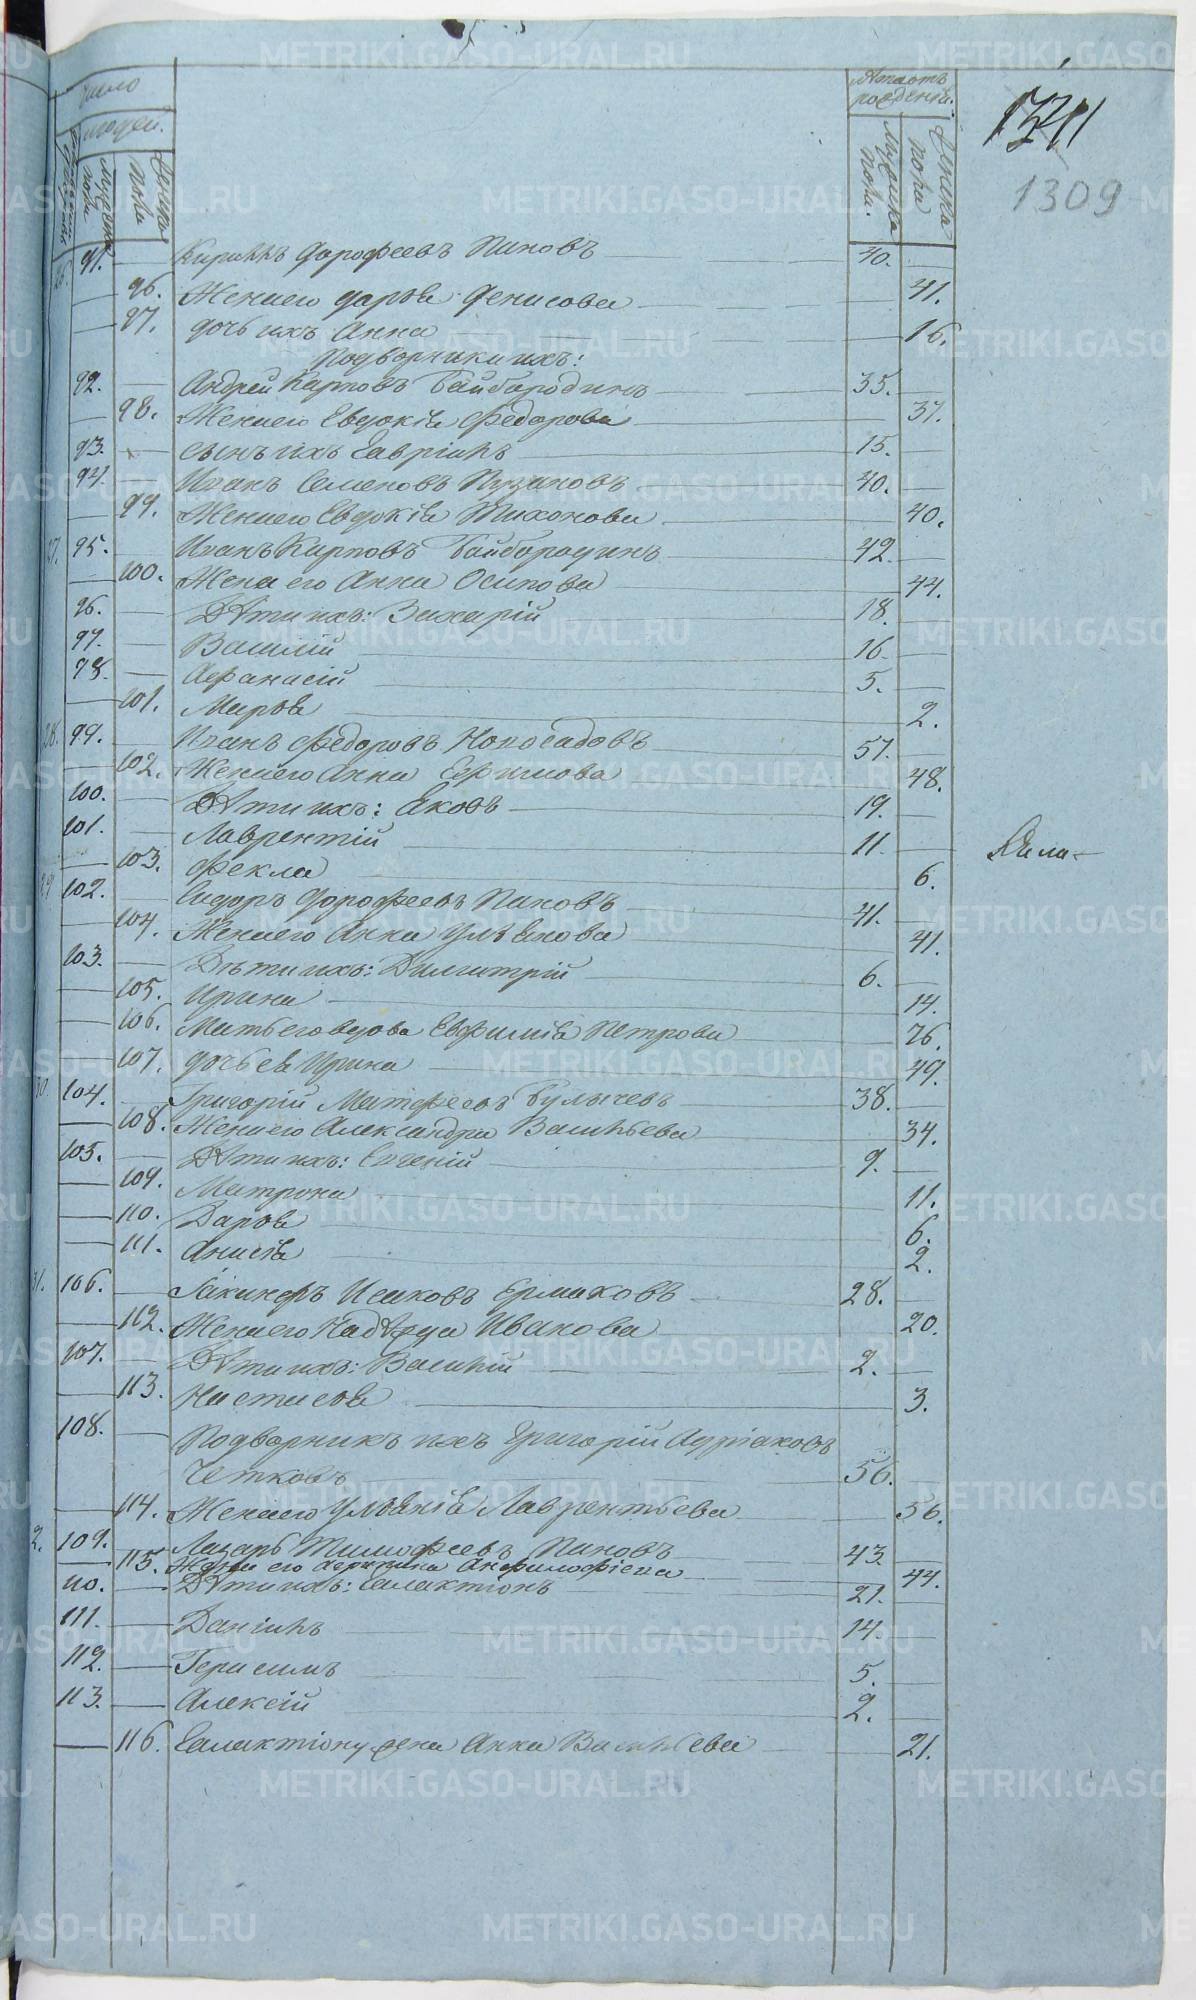 Число
людей.
Мужеска пола
Женска пола
Лета отъ рождения.
Мужеска пола.
Женска пола
1341
1309
26. 91. Кириллъ Дорофеевъ Пановъ 40.
96. Жена его Дарья Денисова 41.
97. Дочь ихъ Анна 16.
Подворники ихъ:
92. Андрей Карповъ Байбородинъ 35.
98. Жена его Евдокія Федорова 37.
93. Сынъ ихъ Гаврiилъ 15.
94. Иванъ Семеновъ Пузановъ 40.
99. Жена его Евдокія Тихонова 40.
27. 95. Иванъ Карповъ Байбородинъ 42.
100. Жена его Анна Осипова 44.
96. Дѣти ихъ: Захарій 18.
97. Василій 16.
98. Афанасій 5.
101. Марья 2.
28. 99. Иванъ Федоровъ Новосадовъ 57.
102. Жена его Анна Ефимова 48.
100. Дѣти ихъ: Яковъ 19.
101. Лаврентій 11.
103. Фекла 6.
29. 102. Сидоръ Дорофеевъ Пановъ 41.
104. Жена его Анна Ульянова 41.
103. Дѣти ихъ: Димитрій 6.
105. Ирина 14.
106. Мать его вдова Евфимія Петрова 76.
107. Дочь ея Ирина 49.
30. 104. Григорій Матфеевъ Булычевъ 38.
108. Жена его Александра Васильева 34.
105. Дѣти ихъ: Евгеній 9.
109. Матрона 11.
110. Дарья 6.
111. Анисія 2.
31. 106. Іакинфъ Исаковъ Ермаковъ 28.
112. Жена его Надѣжда Иванова 20.
107. Дѣти ихъ: Василій 2.
113. Настасья 3.
108. Подворникъ ихъ Григорій Адріановъ
Четковъ 56.
114. Жена его Ульянія Лаврентьева 56.
2. 109. Лазарь Тимофеевъ Пановъ 43.
115. Жена его Анфилофіева 44.
110. Дѣти ихъ: Галактіонъ 21.
111. Даніилъ 14.
112. Герасимъ 5.
113. Алексій 2.
116. Галактіону жена Анна Васильева 21.
METRIKI.GASO-URAL.RU